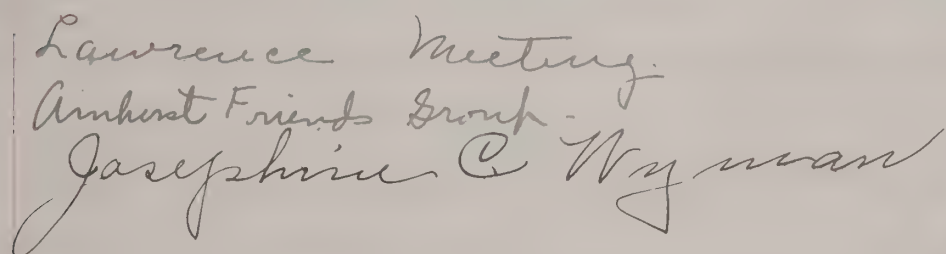 Lawrence Meeting.
Amherst Friends Group.
Josephine C Wyman